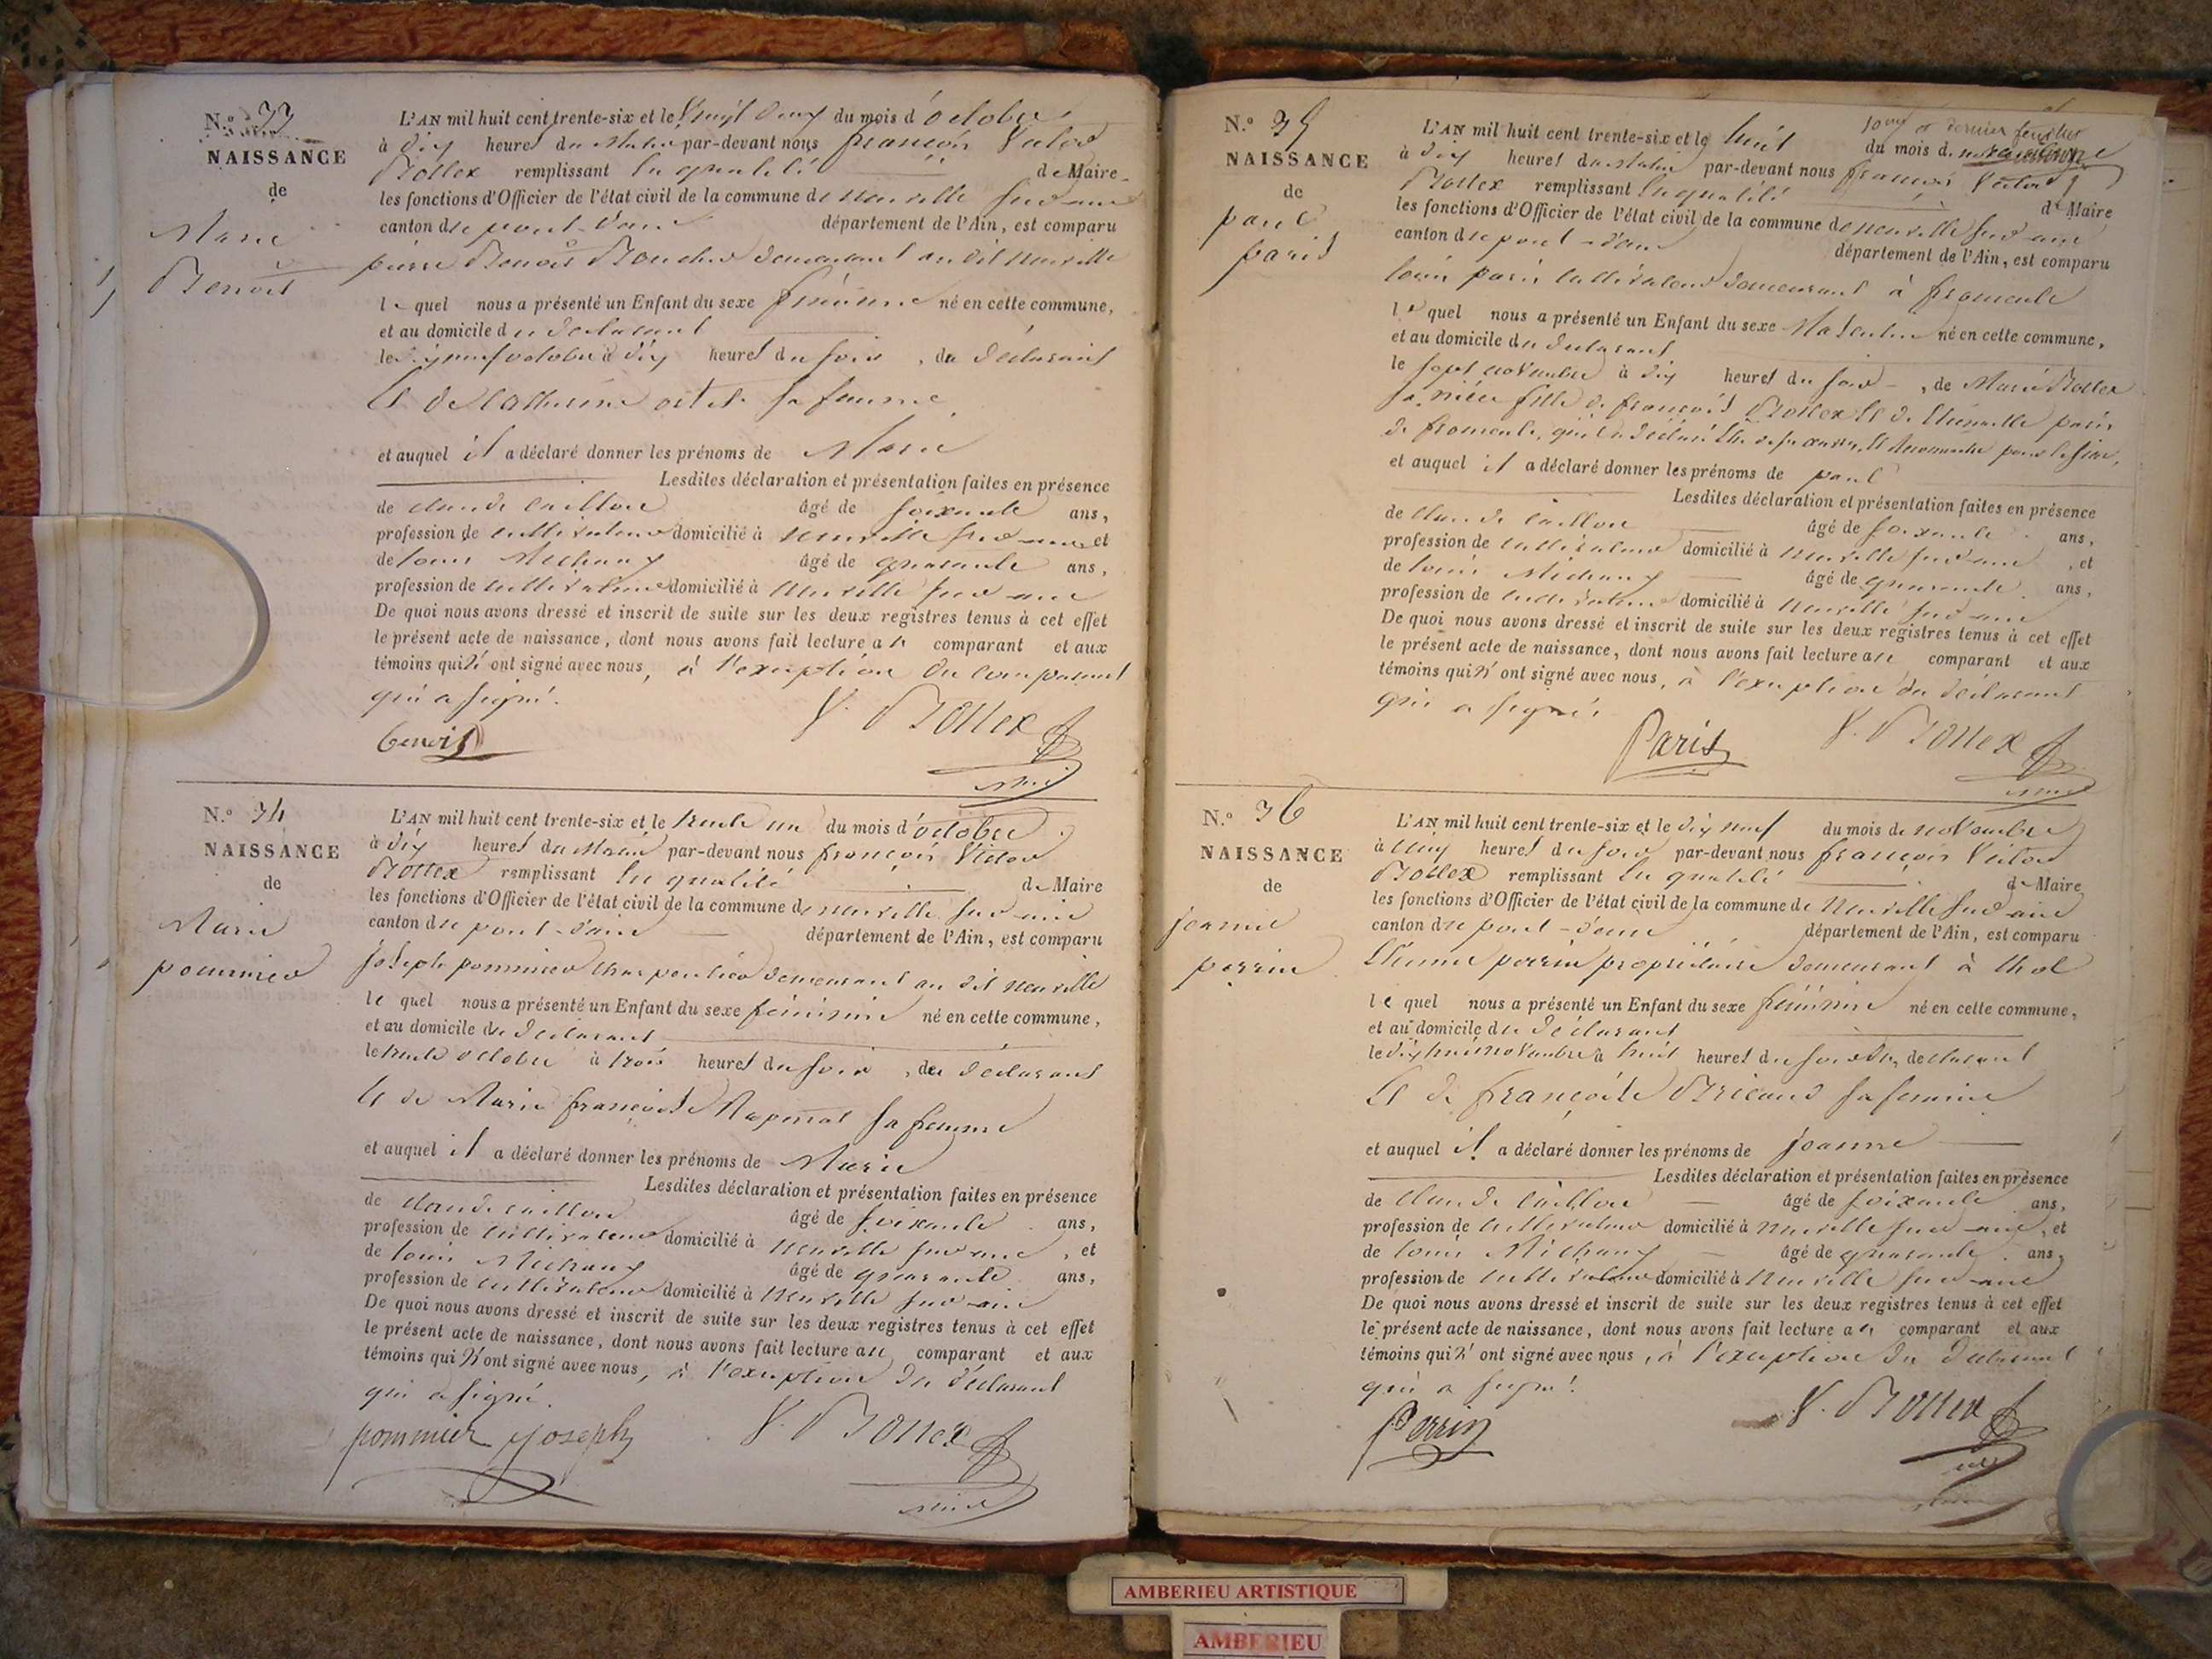 N.° 33
NAISSANCE
de
Marie
Benoit
L'AN mil huit cent trente-six et le vingt deux du mois d'octobre
à dix heures du matin par-devant nous françois Victor
Bollex remplissant en qualité de Maire
les fonctions d'Officier de l'état civil de la commune de neuville sur ain
canton de pont-d'ain département de l'Ain, est comparu
pierre Benoit demeurant au dit neuville
le quel nous a présenté un Enfant du sexe féminin né en cette commune,
et au domicile du déclarant
le dix neuf octobre à dix heures du soir, du déclarant
et de Catherine sa femme
et auquel il a déclaré donner les prénoms de Marie
Lesdites déclaration et présentation faites en présence
de claude caillon âgé de soixante ans,
profession de cultivateur domicilié à neuville sur ain et
de louis Michaux âgé de quarante ans,
profession de cultivateur domicilié à neuville sur ain
De quoi nous avons dressé et inscrit de suite sur les deux registres tenus à cet effet
le présent acte de naissance, dont nous avons fait lecture au comparant et aux
témoins qui n'ont signé avec nous, à l'exception du comparant
qui a signé.
benoit V. Bollex
N.° 34
NAISSANCE
de
Marie
pommier
L'AN mil huit cent trente-six et le trente un du mois d'octobre
à dix heures du matin par-devant nous françois Victor
Bollex remplissant en qualité de Maire
les fonctions d'Officier de l'état civil de la commune de neuville sur ain
canton de pont-d'ain département de l'Ain, est comparu
joseph pommier charpentier demeurant au dit neuville
le quel nous a présenté un Enfant du sexe féminin né en cette commune,
et au domicile du déclarant
le trente octobre à trois heures du soir, du déclarant
et de Marie françoise sa femme
et auquel il a déclaré donner les prénoms de Marie
Lesdites déclaration et présentation faites en présence
de claude caillon âgé de soixante ans,
profession de cultivateur domicilié à neuville sur ain, et
de louis Michaux âgé de quarante ans,
profession de cultivateur domicilié à neuville sur ain
De quoi nous avons dressé et inscrit de suite sur les deux registres tenus à cet effet
le présent acte de naissance, dont nous avons fait lecture au comparant et aux
témoins qui n'ont signé avec nous, à l'exception du déclarant
qui a signé.
pommier joseph V. Bollex
10me et dernier feuillet
N.° 35
NAISSANCE
de
paul
paris
L'AN mil huit cent trente-six et le huit du mois de novembre
à dix heures du matin par-devant nous françois Victor
Bollex remplissant en qualité de Maire
les fonctions d'Officier de l'état civil de la commune de neuville sur ain
canton de pont-d'ain département de l'Ain, est comparu
louis paris cultivateur demeurant à fromente
le quel nous a présenté un Enfant du sexe Masculin né en cette commune,
et au domicile du déclarant
le sept novembre à dix heures du soir, de Marie Bollex
sa nièce fille de françois Bollex et de paris
de fromente, qu'il a déclaré pour le sien,
et auquel il a déclaré donner les prénoms de paul
Lesdites déclaration et présentation faites en présence
de claude caillon âgé de soixante ans,
profession de cultivateur domicilié à neuville sur ain, et
de louis Michaux âgé de quarante ans,
profession de cultivateur domicilié à neuville sur ain
De quoi nous avons dressé et inscrit de suite sur les deux registres tenus à cet effet
le présent acte de naissance, dont nous avons fait lecture au comparant et aux
témoins qui n'ont signé avec nous, à l'exception du déclarant
qui a signé
Paris V. Bollex
N.° 36
NAISSANCE
de
joanne
perrin
L'AN mil huit cent trente-six et le dix neuf du mois de novembre
à cinq heures du soir par-devant nous françois Victor
Bollex remplissant en qualité de Maire
les fonctions d'Officier de l'état civil de la commune de Neuville sur ain
canton de pont-d'ain département de l'Ain, est comparu
Etienne perrin propriétaire demeurant à thol
le quel nous a présenté un Enfant du sexe féminin né en cette commune,
et au domicile du déclarant
le dix huit novembre à huit heures du soir du déclarant
et de françoise Bricaud sa femme
et auquel il a déclaré donner les prénoms de joanne
Lesdites déclaration et présentation faites en présence
de claude caillon âgé de soixante ans,
profession de cultivateur domicilié à neuville sur ain, et
de louis Michaux âgé de quarante ans,
profession de cultivateur domicilié à neuville sur ain
De quoi nous avons dressé et inscrit de suite sur les deux registres tenus à cet effet
le présent acte de naissance, dont nous avons fait lecture au comparant et aux
témoins qui n'ont signé avec nous, à l'exception du déclarant
qui a signé.
Perrin V. Bollex
AMBERIEU ARTISTIQUE
AMBERIEU